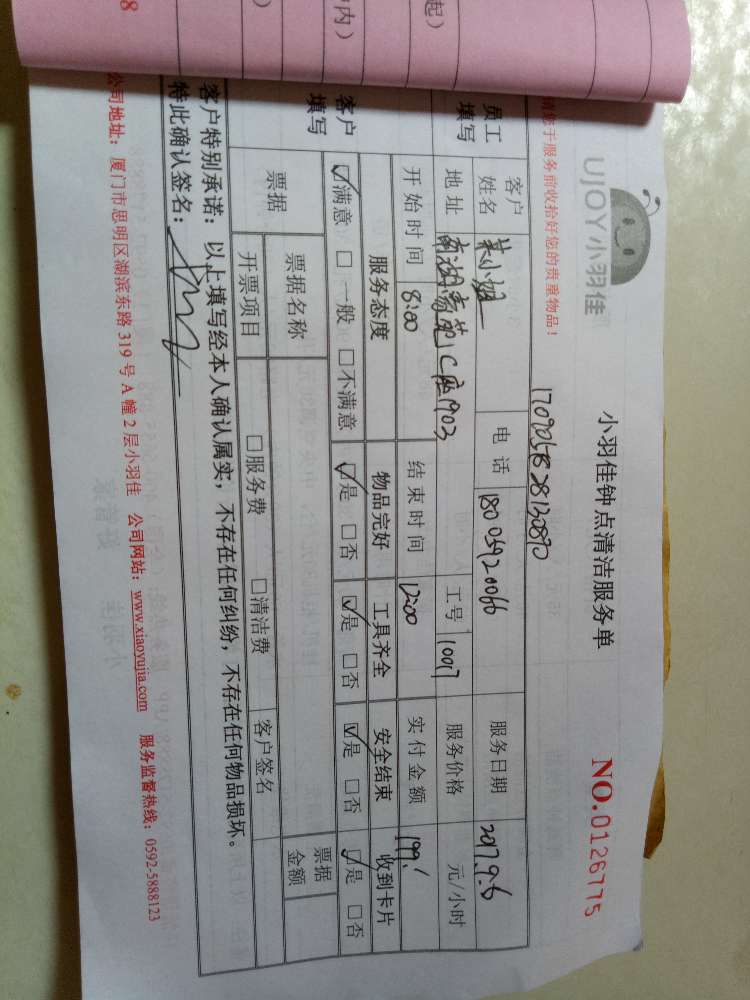 8
内）
起）
UJOY小羽佳
小羽佳钟点清洁服务单
NO.0126775
请您于服务前收拾好您的贵重物品！
员工填写
客户姓名
小姐
电话
18005920066
服务日期
2017.9.6
地址
C座1903
工号
10017
服务价格
元/小时
开始时间
8:00
结束时间
12:00
实付金额
199
客户填写
服务态度
物品完好
工具齐全
安全结束
收到卡片
☑满意 □一般 □不满意
☑是 □否
☑是 □否
☑是 □否
☑是 □否
票据
票据名称
票据金额
开票项目
□服务费 □清洁费
客户签名
客户特别承诺：以上填写经本人确认属实，不存在任何纠纷，不存在任何物品损坏。
特此确认签名：
公司地址：厦门市思明区湖滨东路 319 号 A 幢 2 层小羽佳 公司网站：www.xiaoyujia.com 服务监督热线：0592-5888123